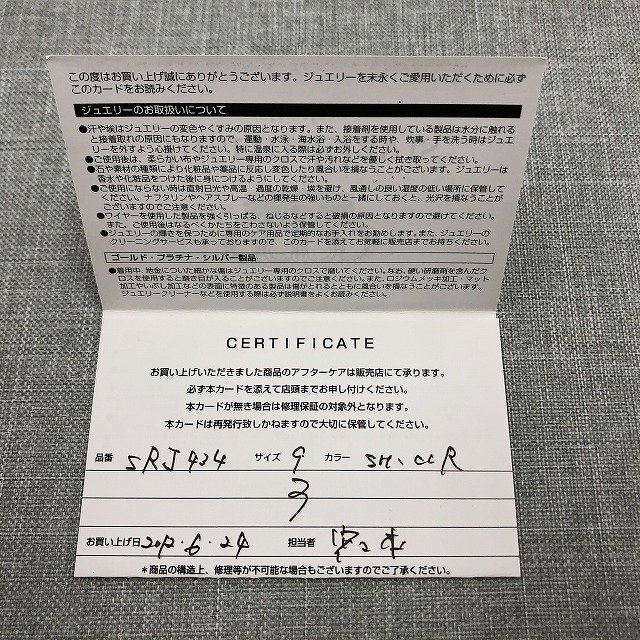 この度はお買い上げ誠にありがとうございます。ジュエリーを末永くご愛用いただくために必ず
このカードをお読みください。
ジュエリーのお取扱いについて
●汗や埃はジュエリーの変色やくすみの原因となります。また、接着剤を使用している製品は水分に触れる
と接着取れの原因にもなりますので、運動・水泳・海水浴・入浴をする時や、炊事・手を洗う時はジュエ
リーを外すよう心掛けてください。特に温泉に入る際は必ずお外しください。
●ご使用後は、柔らかい布やジュエリー専用のクロスで汗や汚れなどを優しく拭き取ってください。
●石や素材の種類により化粧品や薬品に反応し変色したり風合いを損なうことがございます。ジュエリーは
香水や化粧品をつけた後に身につけるようにしてください。
●ご使用にならない時は直射日光や高温・過度の乾燥・埃を避け、風通しの良い湿度の低い場所に保管して
ください。ナフタリンやヘアスプレーなどの揮発生の強いものと一緒にしておくと、光沢を損なうことが
ございますのでご注意ください。
●ワイヤーを使用した製品を強く引っぱる、ねじるなどすると破損の原因となりますので避けてください。
また、ご使用後はなるべくかたちをこわさないよう保管してください。
●ジュエリーの輝きを保つために専用のケア用品で定期的なお手入れをお勧めします。また、ジュエリーの
クリーニングサービスも承っておりますので、このカードを添えてお気軽に販売店までお持ちください。
ゴールド・プラチナ・シルバー製品
●着用中、地金についた細かな傷はジュエリー専用のクロスで磨いてください。なお、硬い研磨剤を含んだク
ロスを使用すると磨き目が入ることがございますのでご注意ください。また、ロジウムメッキ加工・マット
加工やいぶし加工などの表面に特徴のある製品は傷がとれるとともに風合いを損なうことがございます。
ジュエリークリーナーなどを使用する際は必ず説明書をよくお読みください。
CERTIFICATE
お買い上げいただきました商品のアフターケアは販売店にて承ります。
必ず本カードを添えて店頭までお申し付けください。
本カードが無き場合は修理保証の対象外となります。
本カードは再発行致しかねますので大切に保管してください。
品番 SRJ434 サイズ 9 カラー
3
お買い上げ日 2012・6・24 担当者
*商品の構造上、修理等が不可能な場合もございますのでご了承ください。